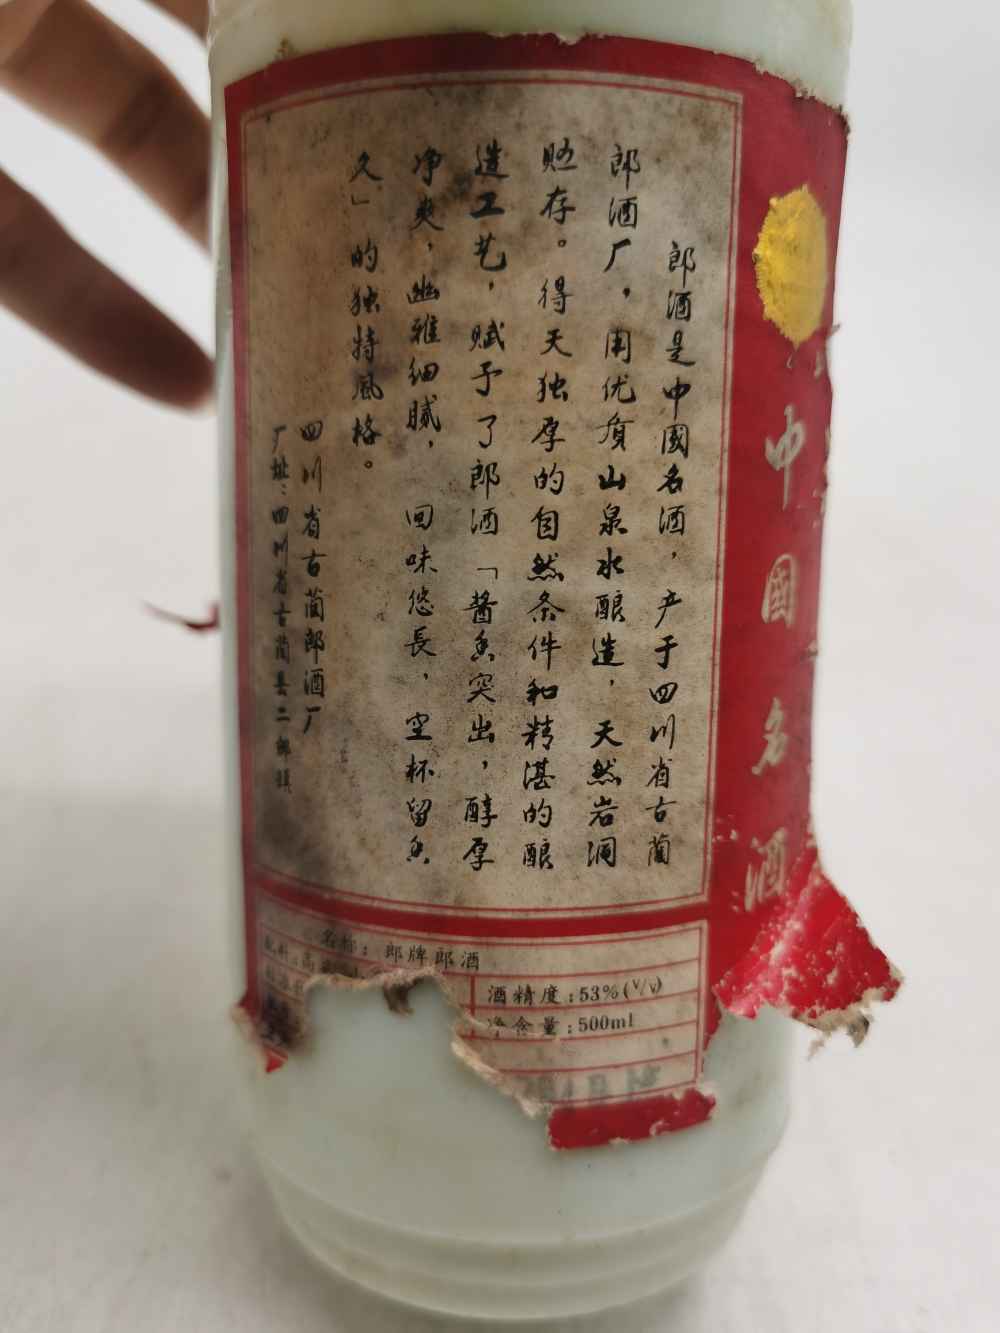 中國名酒
郎酒是中國名酒，产于四川省古蔺
郎酒厂，用优质山泉水酿造，天然岩洞
贮存。得天独厚的自然条件和精湛的酿
造工艺，赋予了郎酒「酱香突出，醇厚
净爽，幽雅细腻，回味悠長，空杯留香
久」的独特風格。
四川省古蔺郎酒厂
厂址：四川省古蔺县二郎镇
名称：郎牌郎酒
配料：高
酒精度：53%(V/V)
净含量：500ml